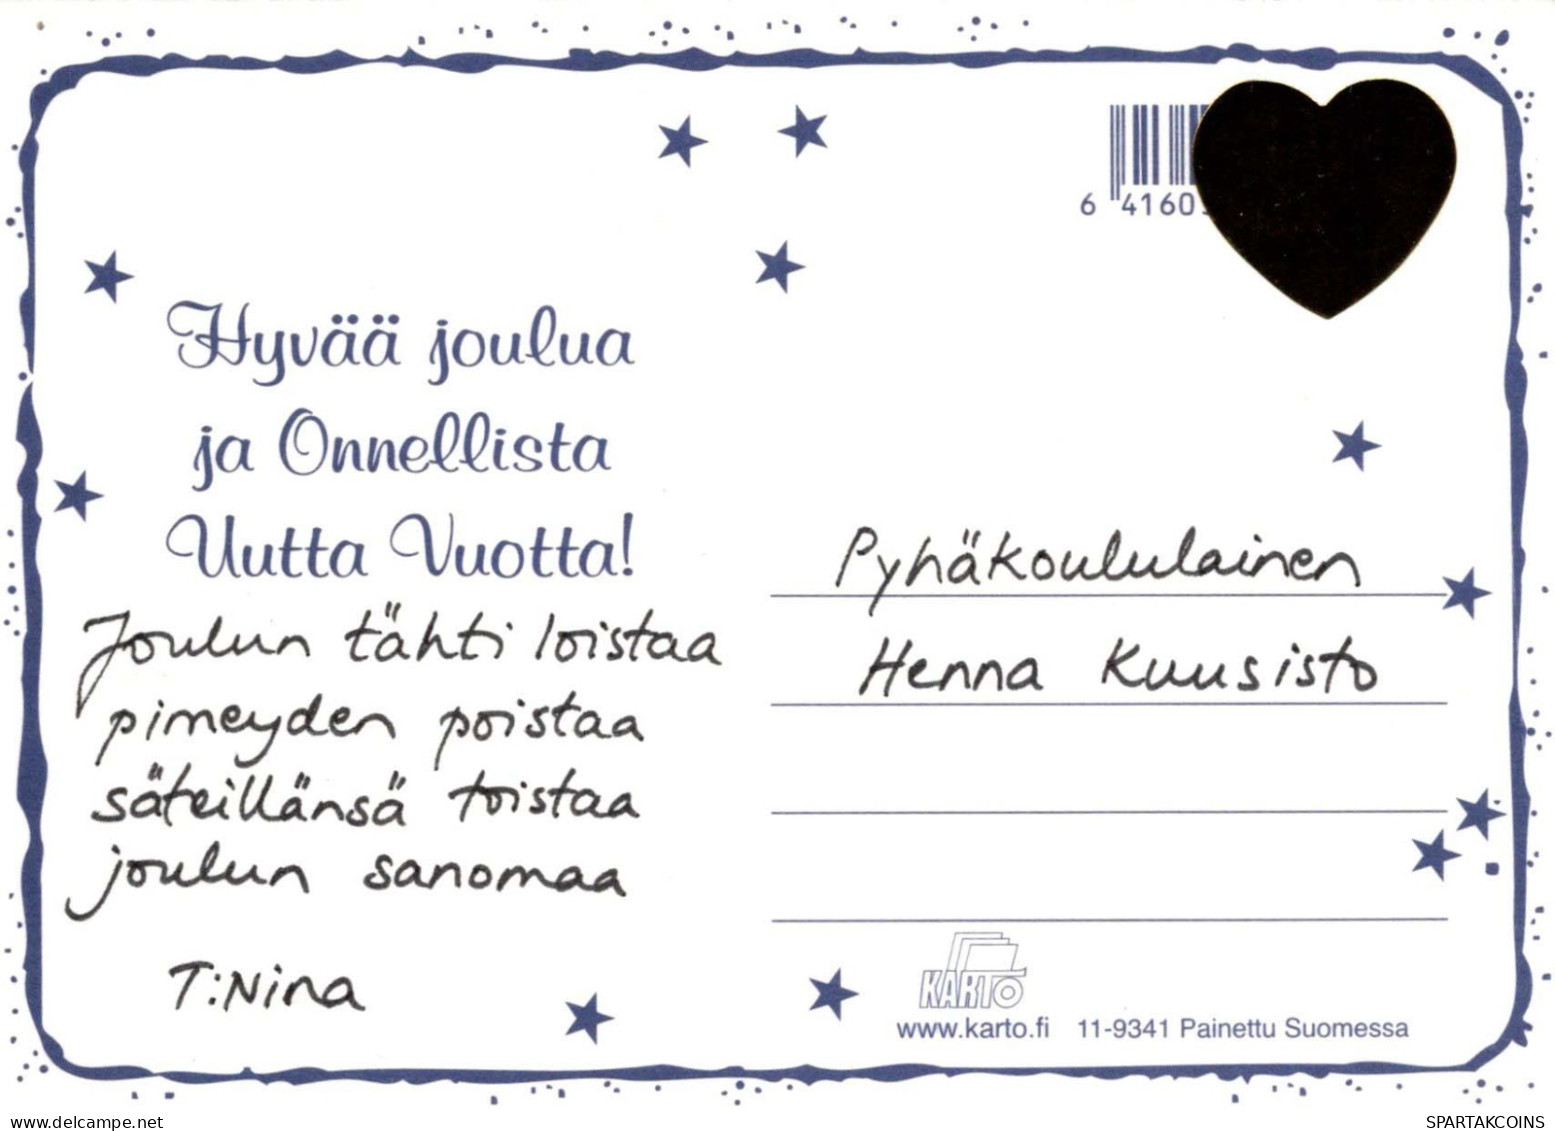 6 41605
Hyvää joulua
ja Onnellista
Uutta Vuotta!
Joulun tähti loistaa
pimeyden poistaa
säteillänsä toistaa
joulun sanomaa
T:Nina
Pyhäkoululainen
Henna Kuusisto
KARTO
www.karto.fi 11-9341 Painettu Suomessa
delcampe.net
SPARTAKCOINS